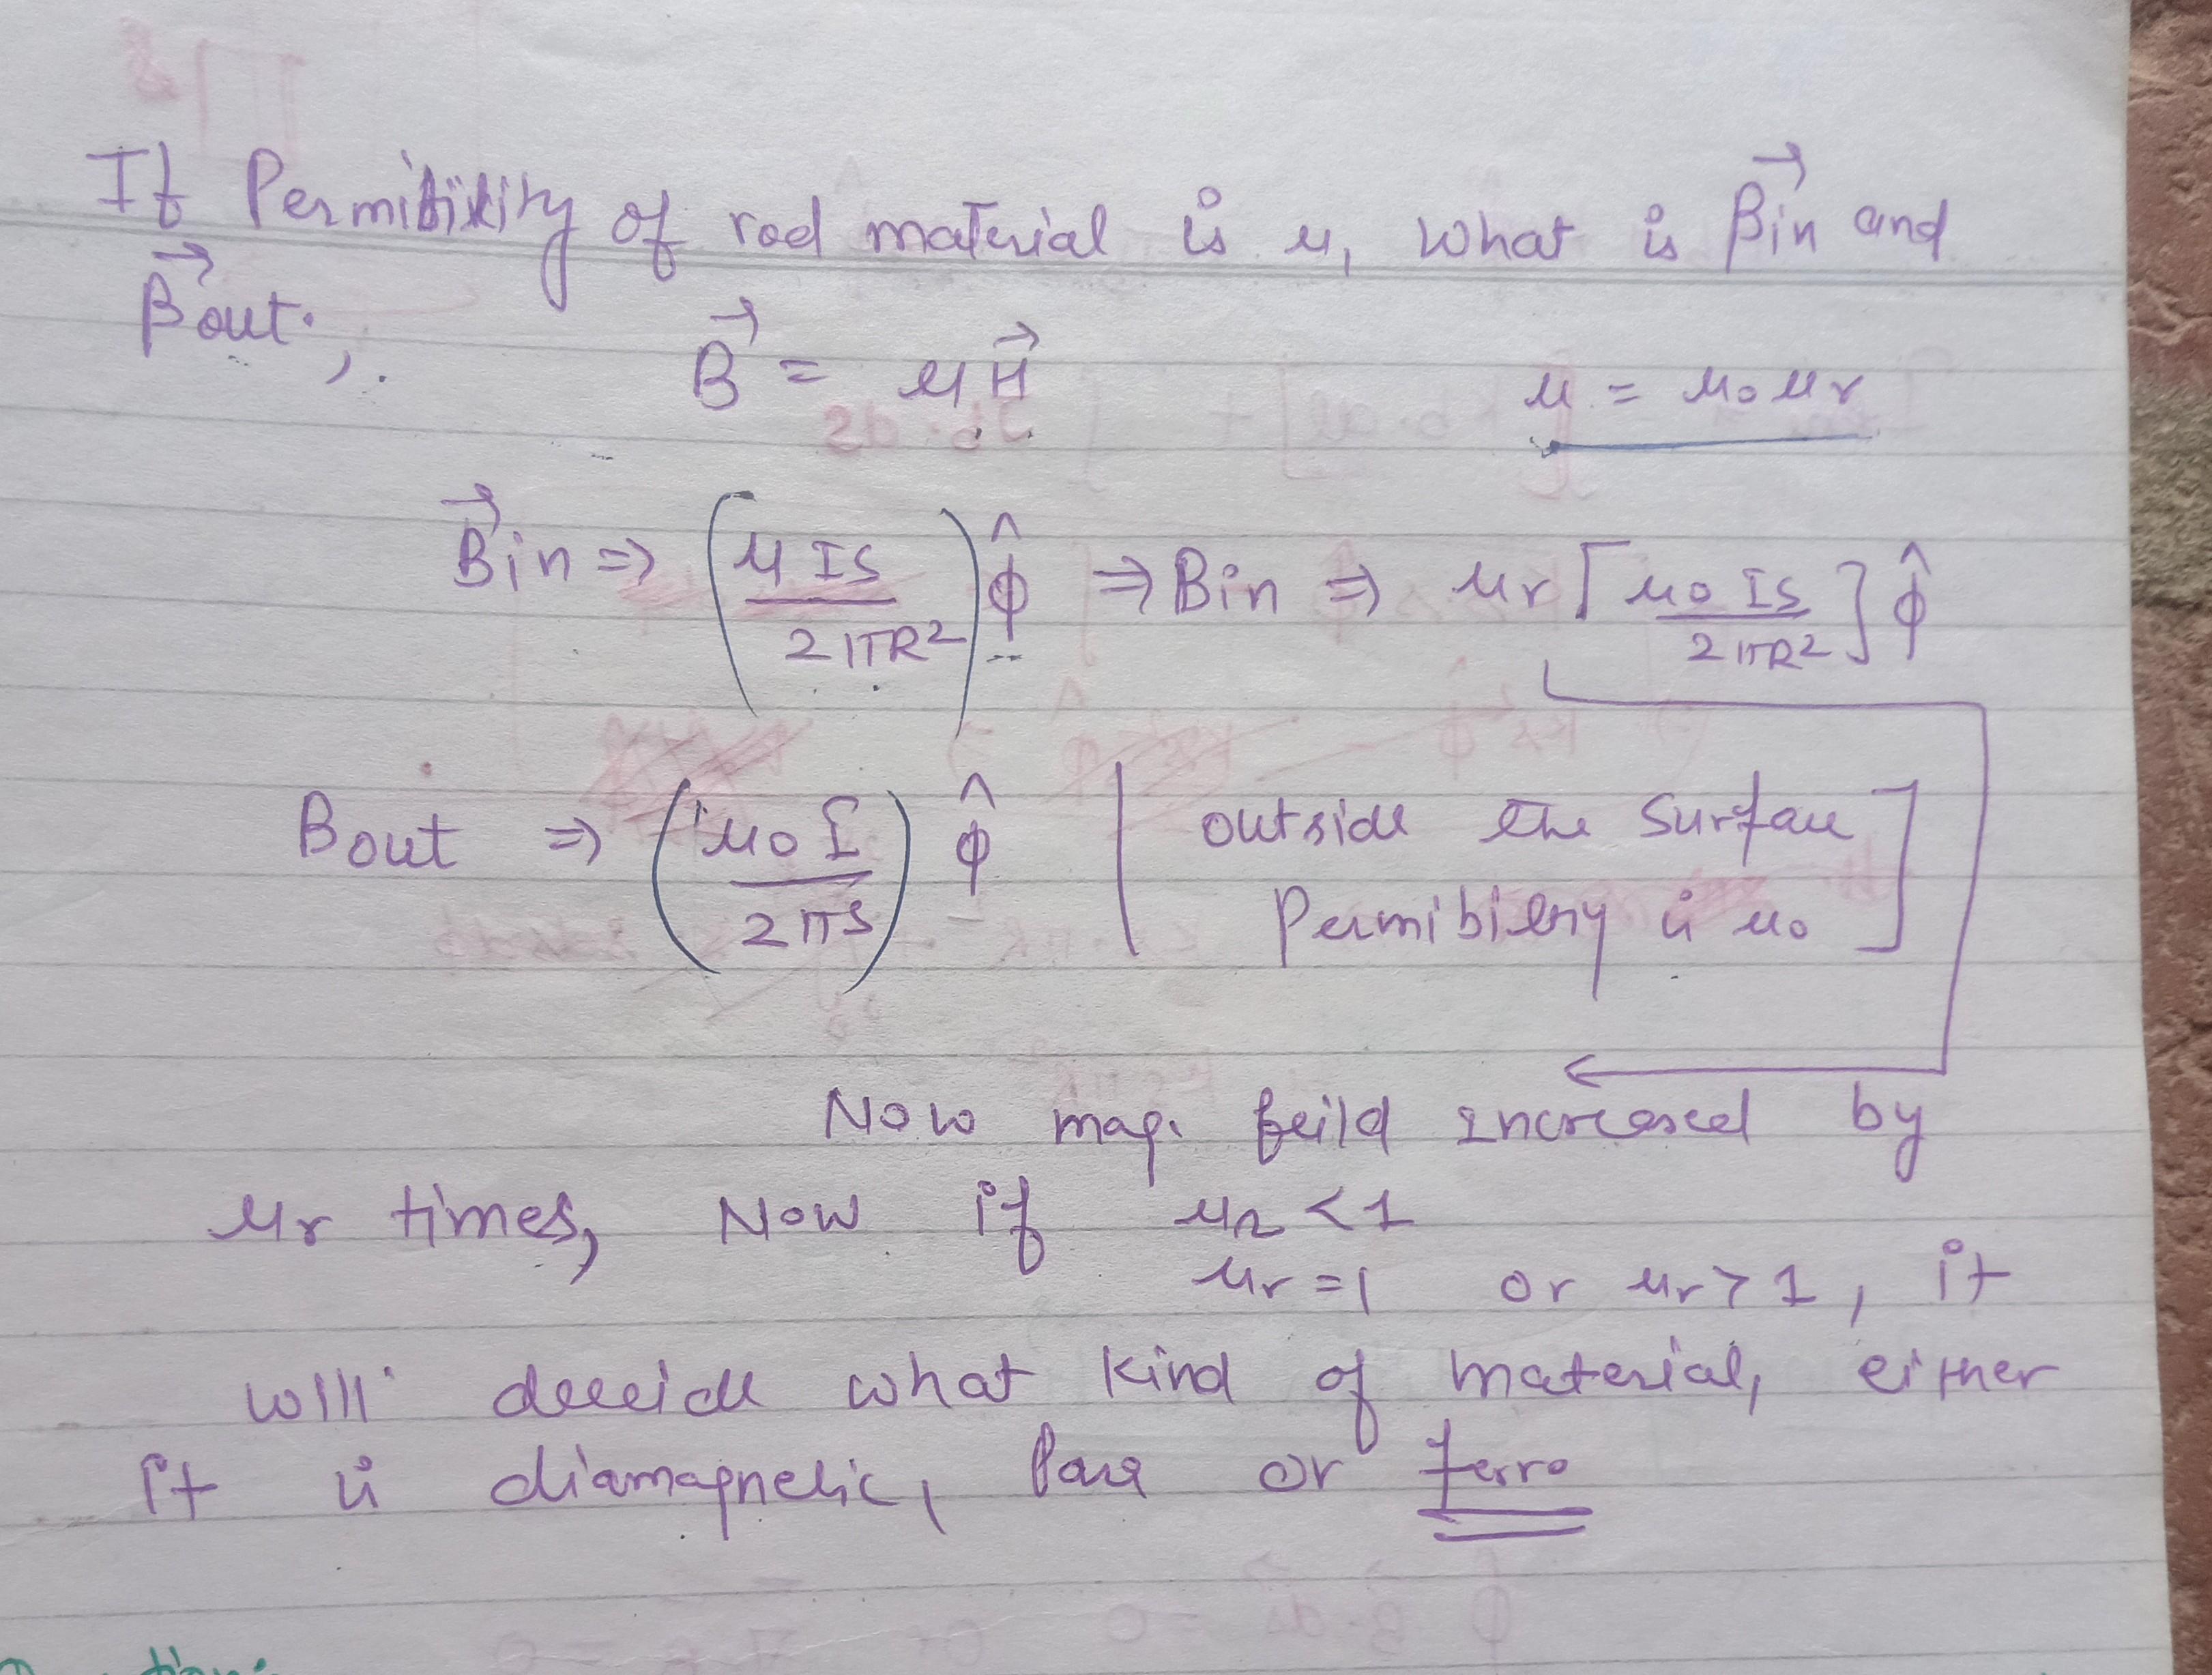 If Permibility of rod material is μ, what is B⃗in and
B⃗out.,
B⃗ = μH⃗ μ = μ0μr
B⃗in ⇒ (μIS / 2πR²) φ̂ ⇒ Bin ⇒ μr [μ0 IS / 2πR²] φ̂
Bout ⇒ (μ0 I / 2πS) φ̂ [outside the Surface
Permibility is μ0]
Now mag. feild increased by
μr times, Now if μr < 1
μr = 1 or μr > 1, it
will decide what kind of material, either
it is diamagnetic, Para or ferro